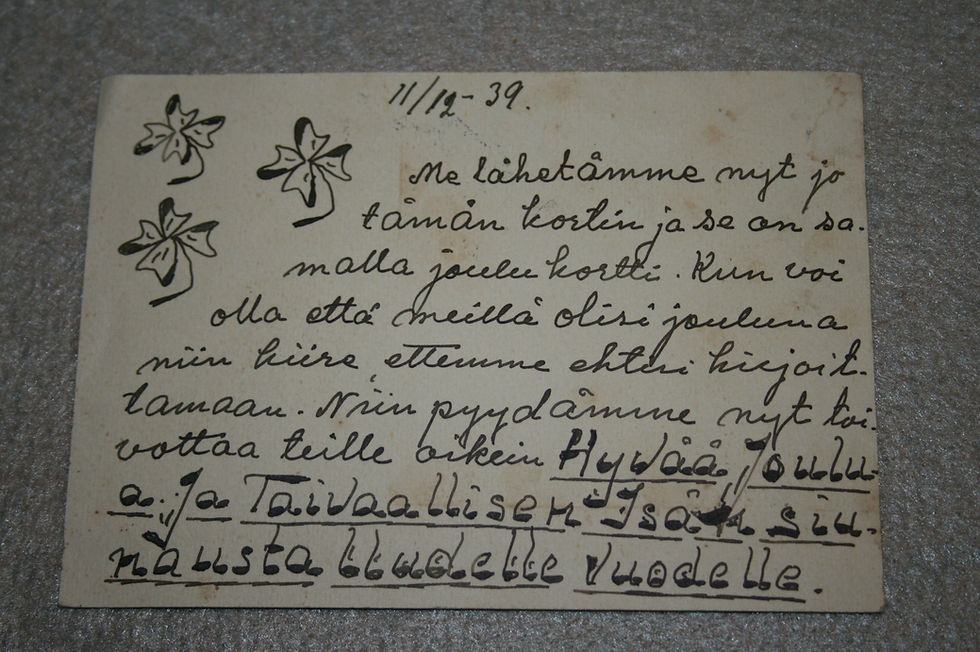 11/12-39.
Me lähetämme nyt jo
tämän kortin ja se on sa-
malla joulu kortti. Kun voi
olla että meillä olisi jouluna
niin kiire, ettemme ehtisi kirjoit-
tamaan. Niin pyydämme nyt toi-
vottaa teille oikein Hyvää Joulu-
a. Ja Taivaallisen Isän siu-
nausta Uudelle Vuodelle.